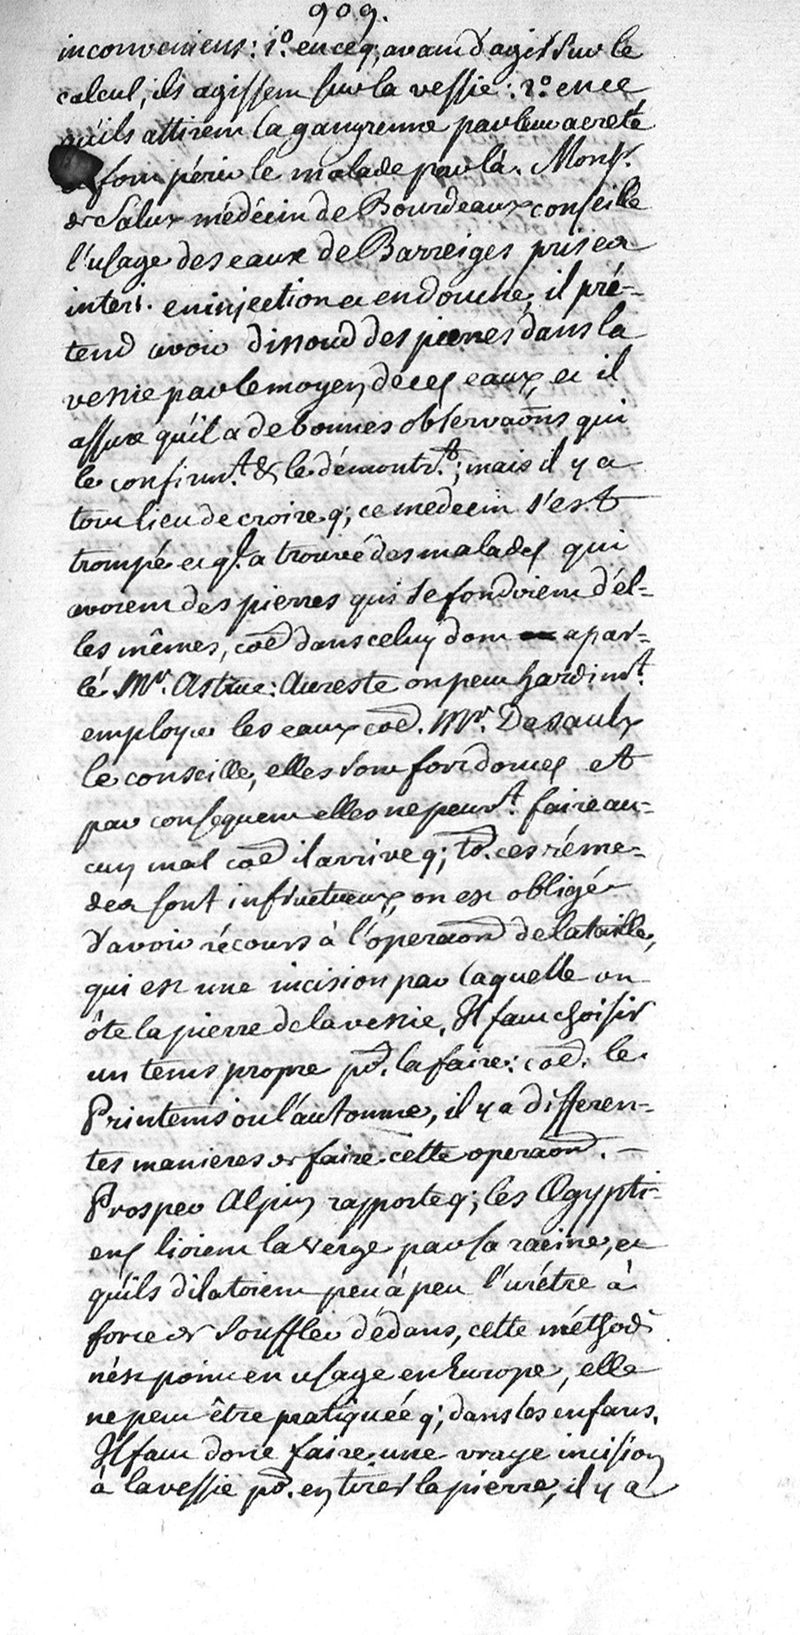 909.
inconveniens: 1.° en ce q; avant d'agir sur le
calcul, ils agissent sur la vessie: 2.° en ce
qu'ils attirent la gangrenne par leur acreté
font périr le malade par là. Mons.r
de Salux médécin de Bourdeaux conseille
l'usage des eaux de Barreiges prises
inter.t en injection et en douche, il pré-
tend avoir dissoud des pierres dans la
vessie par le moyen de ces eaux, et il
assure qu'il a de bonnes observaõns qui
le confirm.t & le démontr.t; mais il y a
tout lieu de croire q; ce medecin s'est
trompé et q.l a trouvé des malades qui
avoient des pierres qui se fondoient d'el-
les mêmes, coẽ dans celuy dont a par-
lé M.r Astruc: Au reste on peut hardim.t
employer les eaux coẽ. M.r Desaulx
le conseille, elles sont fort douces et
par consequent elles ne peuv.t faire au-
cun mal coẽ il arrive q; t.s ces réme-
des sont infructueux, on est obligé
d'avoir récours à l'operaõn de la taille,
qui est une incision par laquelle on
ôte la pierre de la vessie. Il faut choisir
un tems propre p.r la faire: coẽ. le
Printems ou l'automne, il y a differen-
tes manieres de faire cette operaõn. —
Prosper Alpin rapporte q; les Œgypti-
ens lioient la verge par sa racine, et
qu'ils dilatoient peu à peu l'urétre à
force de souffler dédans, cette méthode
n'est point en usage en Europe, elle
ne peut être pratiquée q; dans les enfans.
Il faut donc faire une vraye incision
à la vessie p.r en tirer la pierre, il y a